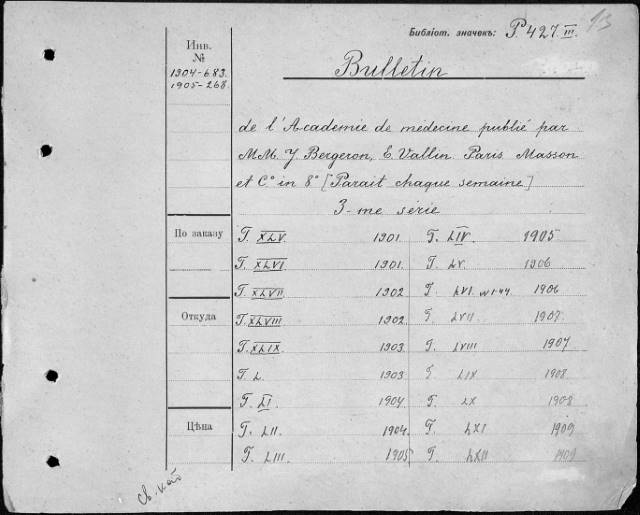 Библіот. значекъ: P427 III. 13
Инв.
№
1904-683.
1905-268.
Bulletin
de l'Academie de médecine publié par
MM. J. Bergeron, E. Vallin. Paris Masson
et C° in 8° [Parait chaque semaine]
3-me série
По заказу
Откуда
Цѣна
T. XLV. 1901. T. LIV. 1905
T. XLVI 1901. T. LV. 1906
T. XLVII 1902 T. LVI. №1-44. 1906
T. XLVIII 1902. T. LVII 1907
T. XLIX. 1903. T. LVIII 1907
T. L. 1903. T. LIX 1908
T. LI 1904. T. LX 1908
T. LII. 1904. T. LXI 1909
T. LIII. 1905 T. LXII 1909
св. каб